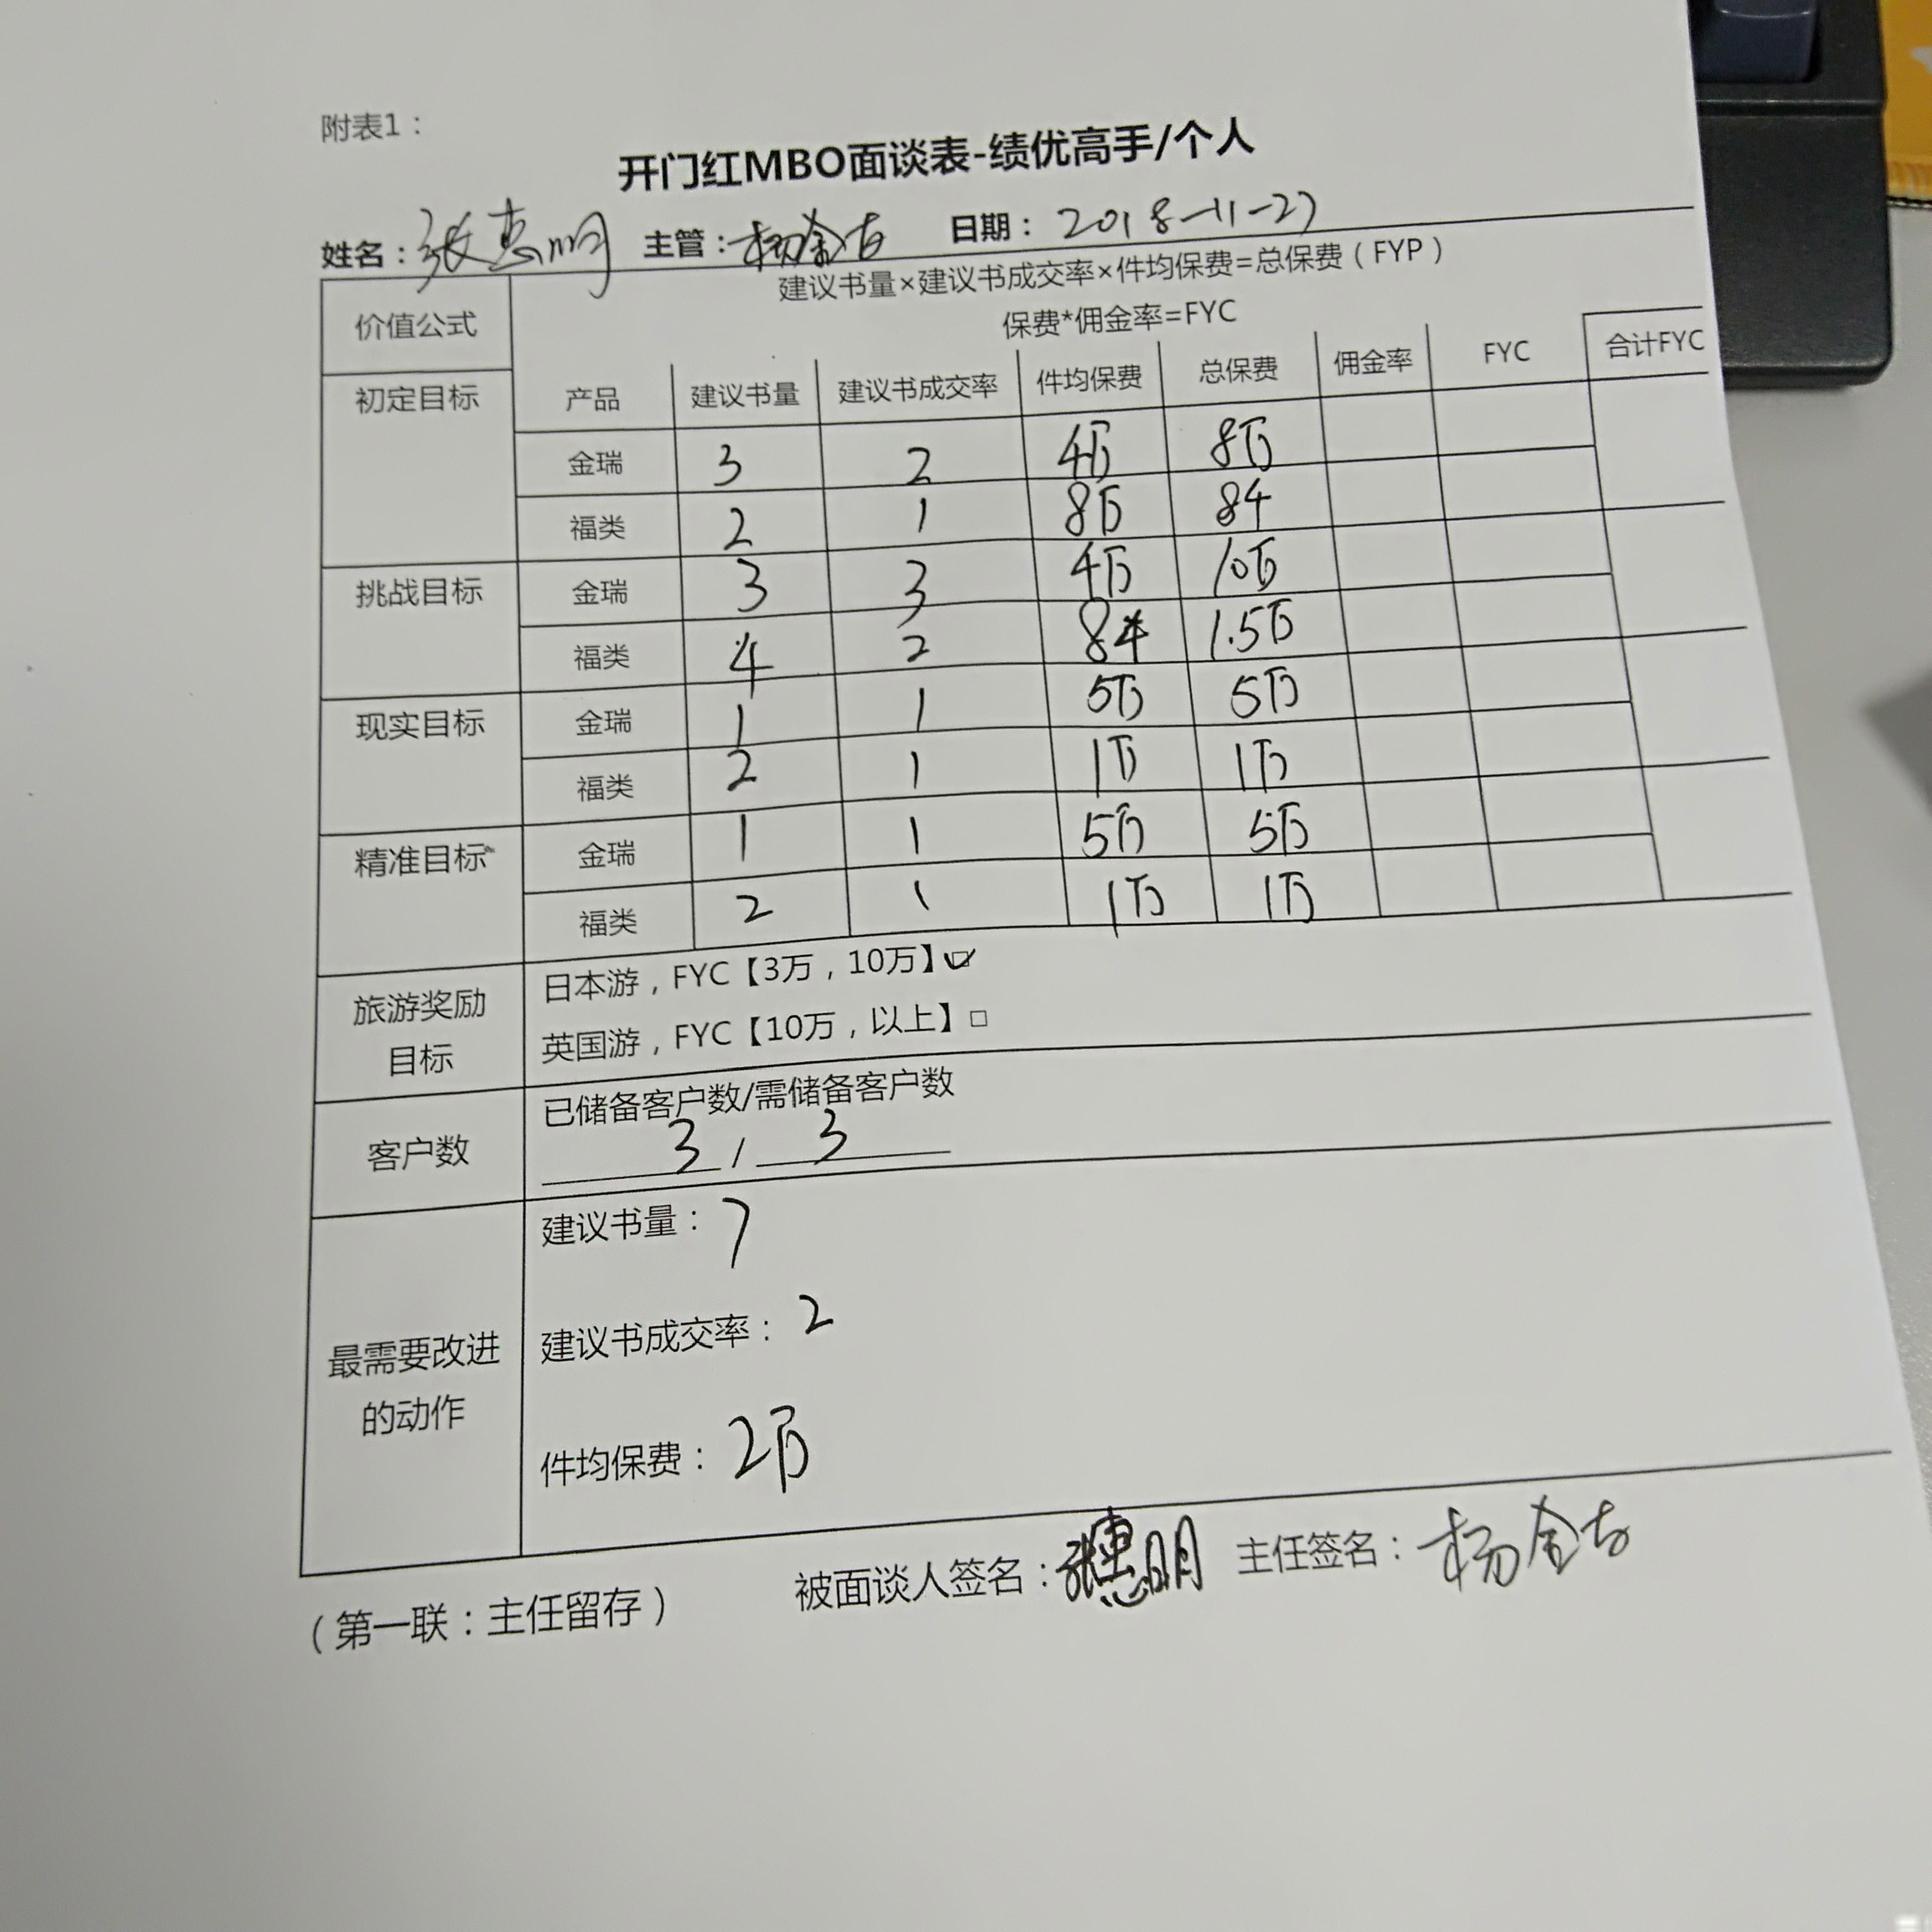 附表1：
开门红MBO面谈表-绩优高手/个人
姓名：张惠明 主管：杨金 日期：2018-11-27
价值公式 建议书量×建议书成交率×件均保费=总保费（FYP）
保费*佣金率=FYC
初定目标 产品 建议书量 建议书成交率 件均保费 总保费 佣金率 FYC 合计FYC
金瑞 3 2 4万 8万
福类 2 1 8万 84
挑战目标 金瑞 3 3 4万 10万
福类 4 2 84 1.5万
现实目标 金瑞 1 1 5万 5万
福类 2 1 1万 1万
精准目标 金瑞 1 1 5万 5万
福类 2 1 1万 1万
旅游奖励目标 日本游，FYC【3万，10万】☑
英国游，FYC【10万，以上】□
客户数 已储备客户数/需储备客户数
3 / 3
最需要改进的动作 建议书量：7
建议书成交率：2
件均保费：2万
被面谈人签名：张惠明 主任签名：杨金
（第一联：主任留存）